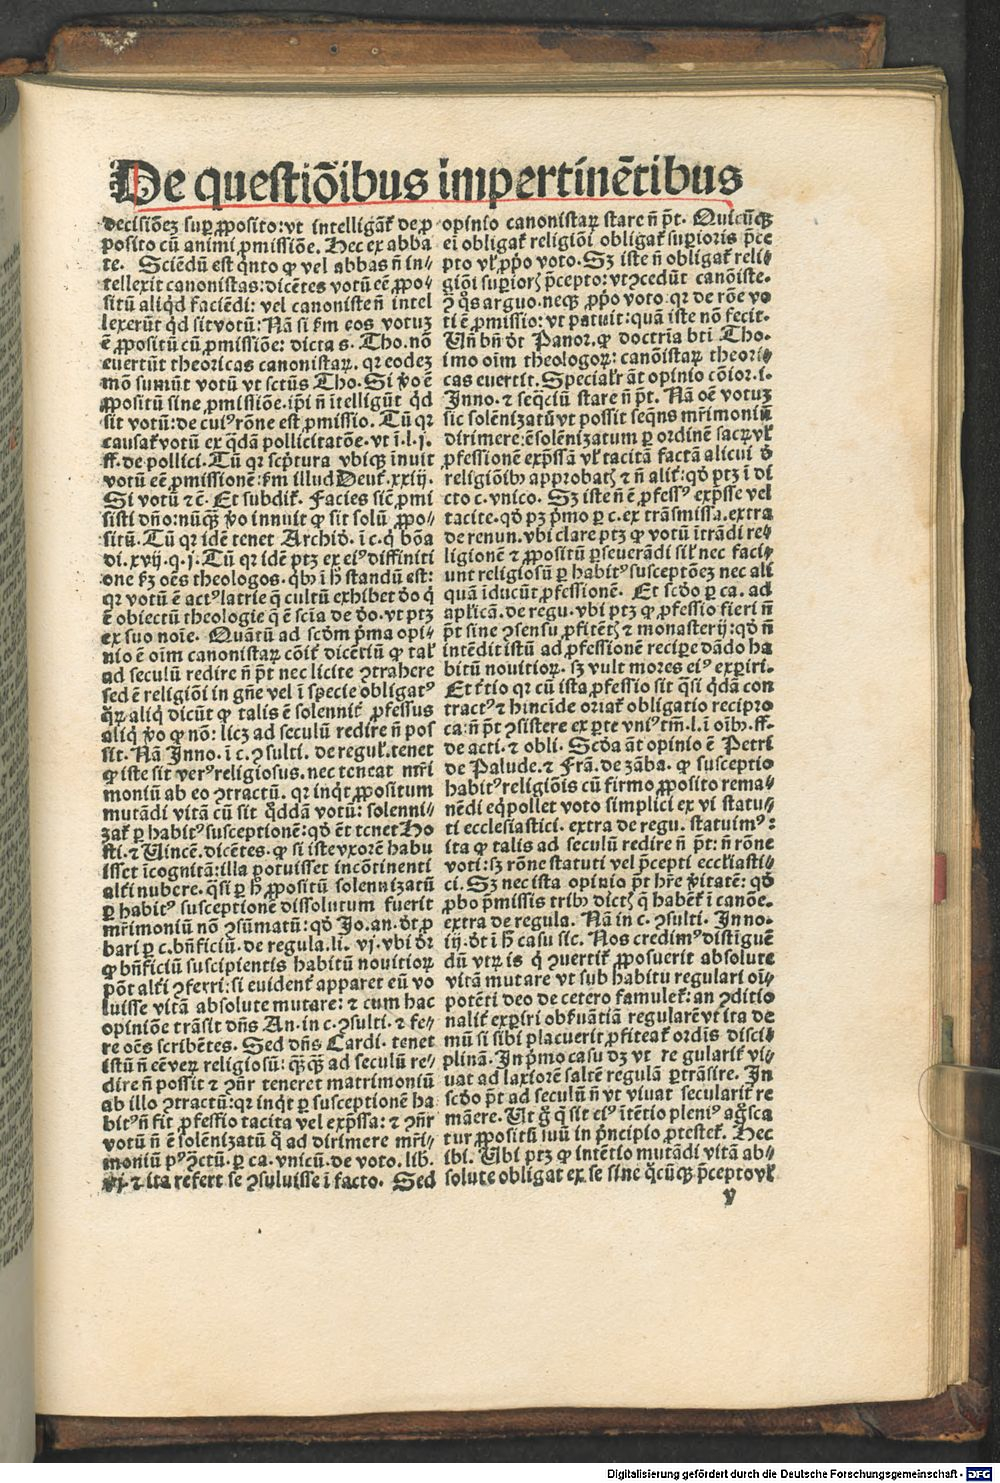 De questiōibus impertinētibus
decisiōeꝫ suꝑ ꝓposito: vt intelligāt̉ de ꝓ
posito cū animi ꝓmissiōe. Hec ex abba
te. Sciēdū est q̇nto ꝙ vel abbas ñ in⸗
tellexit canonistas: dicētes votū eē ꝓpo⸗
sitū aliq̇d faciēdi: vel canoniste ñ intel
lexerūt q̇d sit votū: Nā si ẜm eos votuꝫ
ē ꝓpositū cū ꝓmissiōe: dicta s. Tho. nō
euertūt theoricas canonistaꝝ. qꝛ eodeꝫ
mō sumūt votū vt sctūs Tho. Si ꝟo ē
ꝓpositū sine ꝓmissiōe. ip̄i ñ ītelligūt q̇d
sit votū: de cuiꝰ rōne est ꝓmissio. Tū qꝛ
causat̉ votū ex q̇dā pollicitatōe. vt ī. l. j.
ff. de pollici. Tū qꝛ scp̄tura vbicꝫ īnuit
votū eē ꝓmissionē: ẜm illud Deut̉. xxij.
Si votū ⁊ c̄. Et subdit̉. Facies sic̄ ꝓmi
sisti dño: nūqꝫ ꝟo innuit ꝙ sit solū ꝓpo⸗
sitū. Tū qꝛ idē tenet Archid̉. ī c. q̇ bōa
di. xvij. q. j. Tū qꝛ idē ptꝫ ex eiꝰ diffiniti
one ẜꝫ oēs theologos. q̇bꝫ ī h̄ standū est:
qꝛ votū ē actꝰ latrie q̄ cultū exhibet d̉o q̇
ē obiectū theologie q̄ ē scīa de d̉o. vt ptꝫ
ex suo noīe. Quātū ad scd̉m p̄ma opi⸗
nio ē oīm canonistaꝝ cōit̉ dicētiū ꝙ tal̉
ad seculū redire ñ p̄t nec licite ꝯtrahere
sed ē religiōi in gn̄e vel ī specie obligatꝰ
q̄ꝝ aliq̇ dicūt ꝙ talis ē solennit̉ ꝓfessus
aliq̇ ꝟo ꝙ nō: licꝫ ad seculū redire ñ pos
sit. Nā Inno. ī c. ꝯsulti. de regul̉. tenet
ꝙ iste sit verꝰ religiosus. nec teneat mr̄i
moniū ab eo ꝯtractū. qꝛ inq̇t ꝓpositum
mutādi vitā cū sit q̇ddā votū: solenni⸗
zat̉ ꝑ habitꝰ susceptionē: qd̉ ēt tenet Ho
sti. ⁊ Vincē. dicētes. ꝙ si iste vxorē habu
isset īcognitā: illa potuisset incōtinenti
alt̉i nubere. q̄si ꝑ h̄ ꝓpositū solennizatū
ꝑ habitꝰ susceptionē dissolutum fuerit
mr̄imoniū nō ꝯsūmatū: qd̉ Jo. an. d̉t ꝓ
bari ꝑ c. bn̄ficiū. de regula. li. vj. vbi d̉r
ꝙ bn̄ficiū suscipientis habitū nouitioꝝ
pōt alt̉i ꝯferri: si euident̉ apparet eū vo
luisse vitā absolute mutare: ⁊ cum hac
opiniōe trāsit dn̄s An. in c. ꝯsulti. ⁊ fe⸗
re oēs scribētes. Sed dn̄s Cardi. tenet
istū ñ eē verꝝ religiosū: q̄ꝫq̄ꝫ ad seculū re⸗
dire ñ possit ⁊ ꝯn̄r teneret matrimoniū
ab illo ꝯtractū: qꝛ inq̇t ꝑ susceptionē ha
bitꝰ ñ fit ꝓfessio tacita vel exp̄ssa: ⁊ ꝯn̄r
votū ñ ē solēnizatū q̇ ad dirimere mr̄i⸗
moniū pꝰ ꝯctū. ꝑ ca. vnicū. de voto. lib.
vj. ⁊ ita refert se ꝯsuluisse ī facto. Sed
opinio canonistaꝝ stare ñ p̄t. Quicūqꝫ
ei obligat̉ religiōi obligat̉ suꝑioris p̄ce
pto vl̉ ꝓp̄o voto. Sꝫ iste ñ obligat̉ reli⸗
giōi suꝑioꝝ p̄cepto: vt ꝯcedūt canōiste.
⁊ ꝯ q̇s arguo. neqꝫ ꝓp̄o voto qꝛ de rōe vo
ti ē ꝓmissio: vt patuit: quā iste nō fecit.
Vn̄ bn̄ d̉t Panor. ꝙ doctria bt̄i Tho⸗
imo oīm theologoꝝ: canōistaꝝ theori⸗
cas euertit. Special̉r āt opinio cōior. i.
Inno. ⁊ seq̄ciū stare ñ p̄t. Nā oē votuꝫ
sic solēnizatū vt possit seq̄ns mr̄imoniū
dirimere: ē solēnizatum ꝑ ordinē sacꝝ vl̉
ꝓfessionē exp̄ssā vl̉ tacitā factā alicui d̉
religiōibꝫ approbatꝭ ⁊ ñ alit̉: qd̉ ptꝫ ī di
cto c. vnico. Sꝫ iste ñ ē ꝓfessꝰ exp̄sse vel
tacite. qd̉ pꝫ p̄mo ꝑ c. ex trāsmissa. extra
de renun. vbi clare ptꝫ ꝙ votū ītrādi re⸗
ligionē ⁊ ꝓpositū ꝑseuerādi sil̉ nec faci⸗
unt religiosū ꝑ habitꝰ susceptōeꝫ nec ali
quā īducūt ꝓfessionē. Et scd̉o ꝑ ca. ad
apl̉icā. de regu. vbi ptꝫ ꝙ ꝓfessio fieri ñ
p̄t sine ꝯsensu ꝓfitētꝭ ⁊ monasterij: qd̉ ñ
intēdit istū ad ꝓfessionē recipe dādo ha
bitū nouitioꝝ. sꝫ vult mores eiꝰ exꝑiri.
Et t̉tio qꝛ cū ista ꝓfessio sit q̄si q̇dā con
tractꝰ ⁊ hincide oriat̉ obligatio recipro
ca: ñ p̄t ꝯsistere ex ꝑte vniꝰ tm̄. l. ī oībꝫ. ff.
de acti. ⁊ obli. Scd̉a āt opinio ē Petri
de Palude. ⁊ Frā. de zāba. ꝙ susceptio
habitꝰ religiōis cū firmo ꝓposito rema⸗
nēdi eq̇pollet voto simplici ex vi statu⸗
ti ecclesiastici. extra de regu. statuimꝰ:
ita ꝙ talis ad seculū redire ñ p̄t: ñ rōne
voti: sꝫ rōne statuti vel p̄cepti eccl̉iasti⸗
ci. Sꝫ nec ista opinio p̄t hr̄e ꝟitatē: qd̉
ꝓbo p̄missis tribꝫ dictꝭ q̄ habēt̉ ī canōe.
extra de regula. Nā in c. ꝯsulti. Inno⸗
iij. d̉t ī h̄ casu sic. Nos credimꝰ distīguē
dū vtꝝ is q̇ ꝯuertit̉ ꝓposuerit absolute
vitā mutare vt sub habitu regulari oī⸗
potēti deo de cetero famulet̉: an ꝯditio
nalit̉ exꝑiri obẜuātiā regularē vt ita de
mū si sibi placuerit ꝓfiteat̉ ordīs disci⸗
plinā. In p̄mo casu dꝫ vt re gularit̉ vi⸗
uat ad laxiorē saltē regulā ꝑtrāsire. In
scd̉o p̄t ad seculū ñ vt viuat secularit̉ re
māere. Vt g̊ q̇ sit eiꝰ ītētio pleniꝰ ag̊sca
tur ꝓpositū suū in p̄ncipio ꝓtestet̉. Hec
ibi. Vbi ptꝫ ꝙ intētio mutādi vitā ab⸗
solute obligat ex se sine q̇cūqꝫ p̄cepto vl̉
y
Digitalisierung gefördert durch die Deutsche Forschungsgemeinschaft - DFG